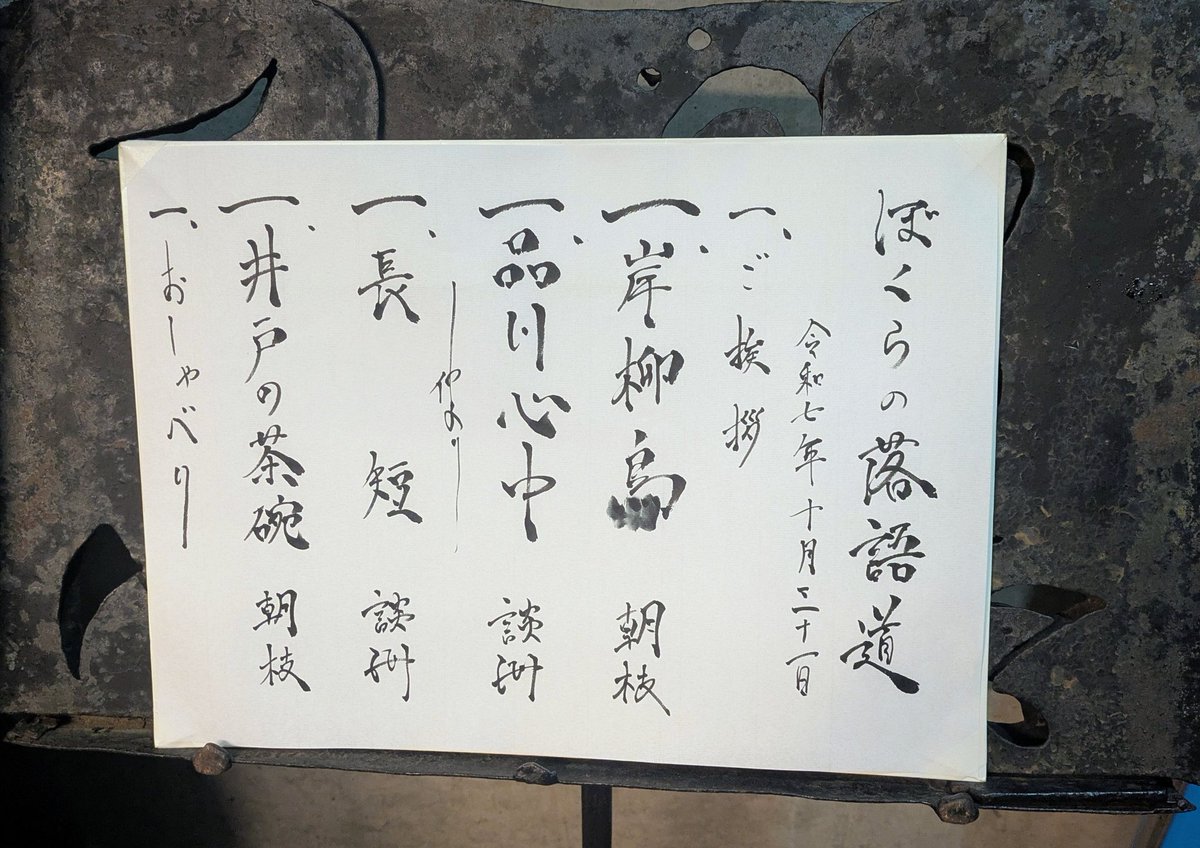 ぼくらの落語道
令和七年十月三十一日
一、ご挨拶
一、岸柳島 朝枝
一、品川心中 談洲
一、長短 談洲
一、井戸の茶碗 朝枝
一、おしゃべり